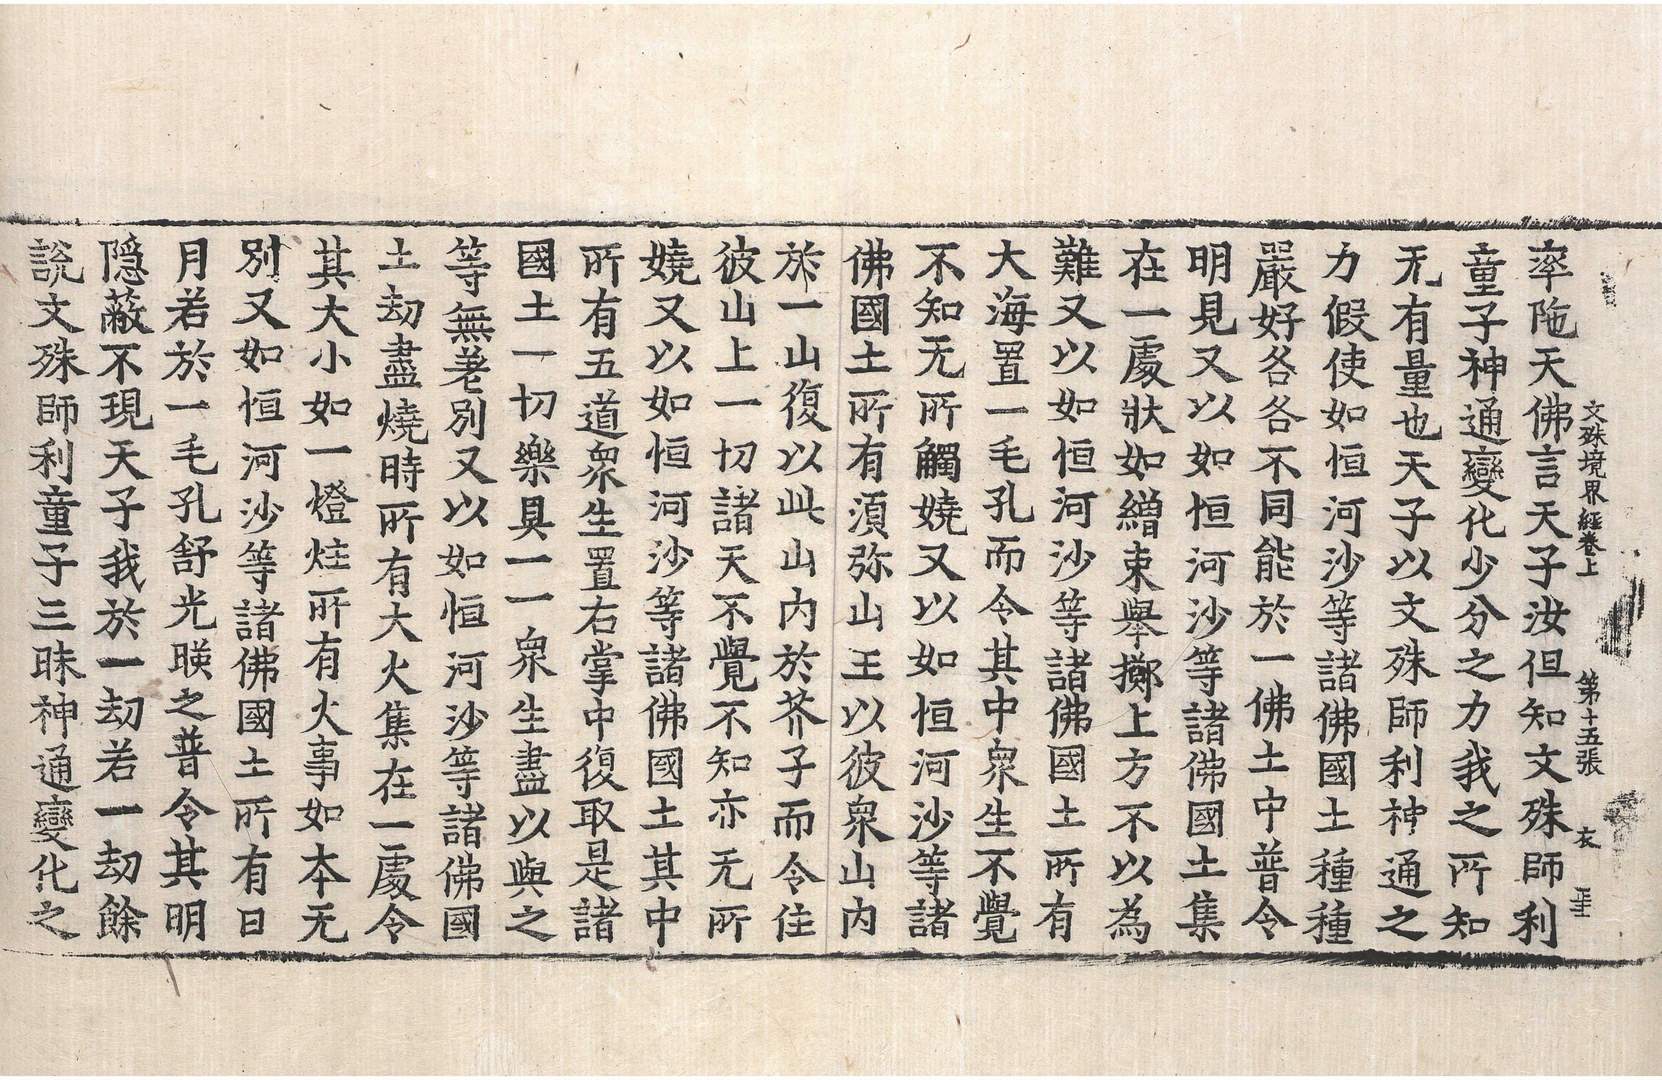 文殊境界經卷上　第十五張　衣
率陁天佛言天子汝但知文殊師利
童子神通變化少分之力我之所知
无有量也天子以文殊師利神通之
力假使如恒河沙等諸佛國土種種
嚴好各各不同能於一佛土中普令
明見又以如恒河沙等諸佛國土集
在一處狀如繒束舉擲上方不以為
難又以如恒河沙等諸佛國土所有
大海置一毛孔而令其中衆生不覺
不知无所觸嬈又以如恒河沙等諸
佛國土所有須弥山王以彼衆山內
於一山復以此山內於芥子而令住
彼山上一切諸天不覺不知亦无所
嬈又以如恒河沙等諸佛國土其中
所有五道衆生置右掌中復取是諸
國土一切樂具一一衆生盡以與之
等無差別又以如恒河沙等諸佛國
土劫盡燒時所有大火集在一處令
其大小如一燈炷所有火事如本无
別又如恒河沙等諸佛國土所有日
月若於一毛孔舒光暎之普令其明
隱蔽不現天子我於一劫若一劫餘
說文殊師利童子三昧神通變化之